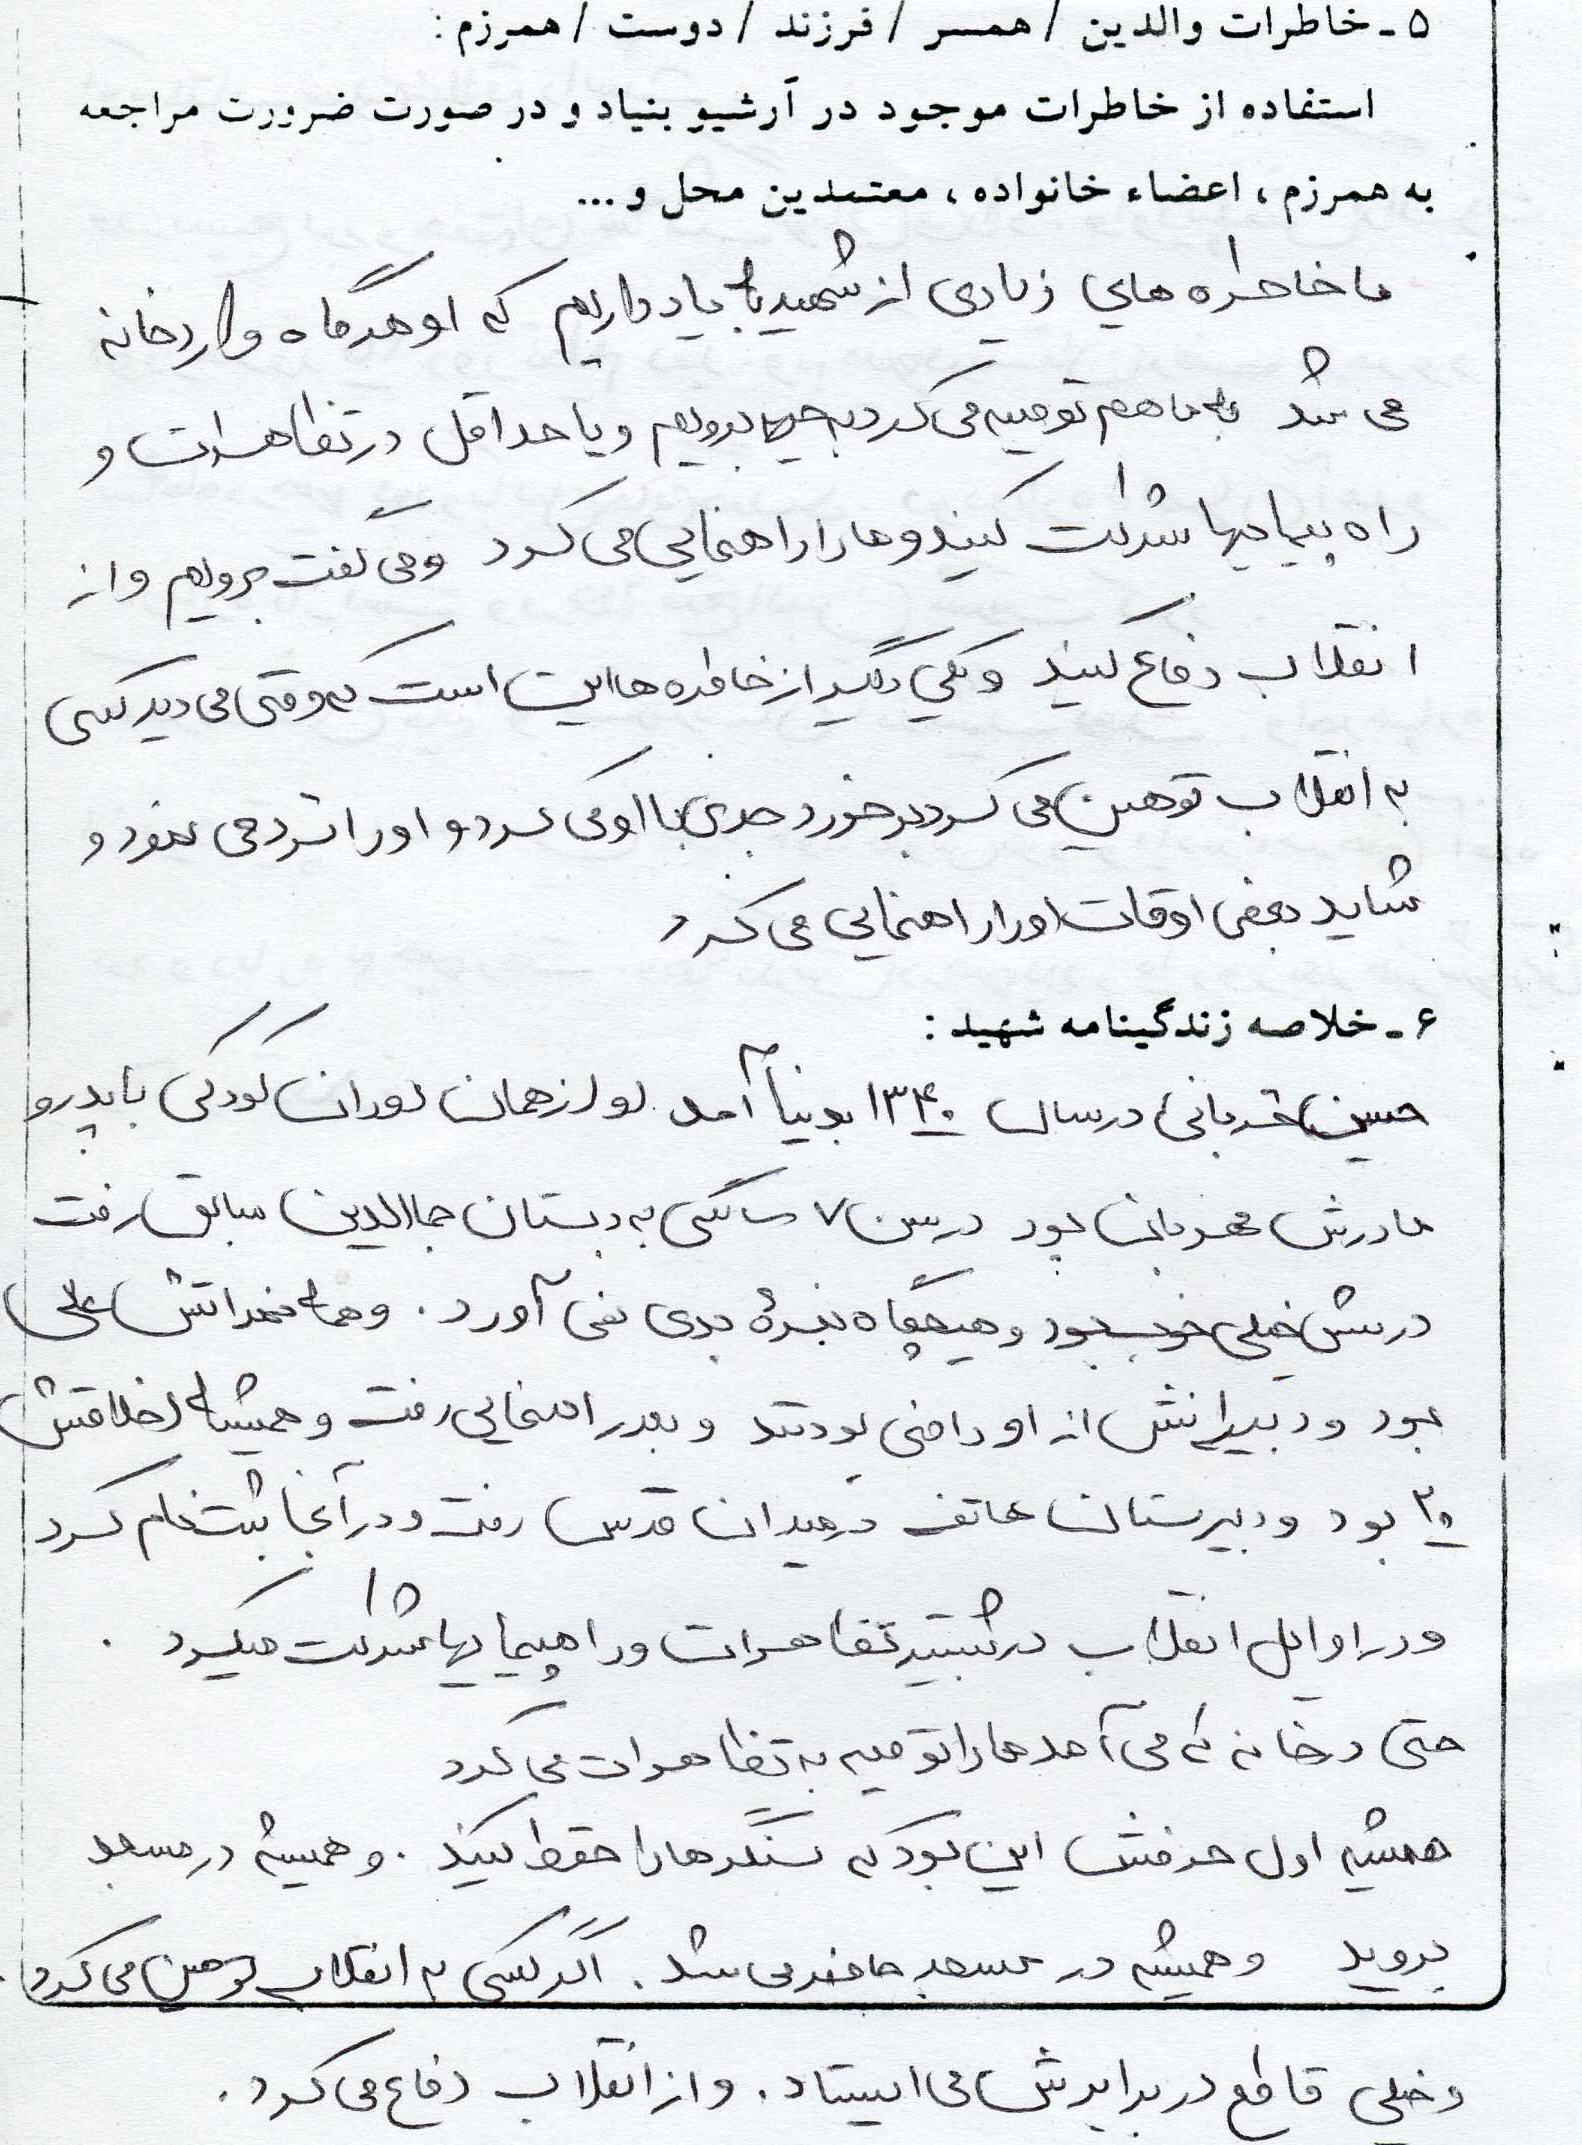 ۵ ـ خاطرات والدین / همسر / فرزند / دوست / همرزم :
استفاده از خاطرات موجود در آرشیو بنیاد و در صورت ضرورت مراجعه
به همرزم ، اعضاء خانواده ، معتمدین محل و ...
ما خاطره هایی زیادی از شهید به یاد داریم که او هرگاه وارد خانه
می شد به ما هم توصیه می کرد به جبهه برویم و یا حداقل در تظاهرات و
راه پیماییها شرکت کنید و ما را راهنمایی می کرد و می گفت برویم و از
انقلاب دفاع کنید و یکی دیگر از خاطره ها این است که وقتی می دید کسی
به انقلاب توهین می کرد برخورد جدی با او می کرد و او را ترد می نمود و
شاید بعضی اوقات او را راهنمایی می کرد
۶ ـ خلاصه زندگینامه شهید :
حسین قربانی در سال ۱۳۴۰ بدنیا آمد او از همان دوران کودکی با پدر و
مادرش مهربان بود در سن ۷ سالگی به دبستان جماالدین سابق رفت
درسش خیلی خوب بود و هیچگاه نمرهٔ بدی نمی آورد . و همه نمراتش عالی
بود و دبیرانش از او راضی بودند و بعد راهنمایی رفت و همیشه اخلاقش
۲۰ بود و دبیرستان هاتف در میدان قدس رفت و در آنجا ثبت نام کرد
و در اوایل انقلاب در بیشتر تظاهرات و راهپیمایها شرکت میکرد .
حتی در خانه که می آمد ما را توصیه به تظاهرات می کرد
همیشه اول حرفش این بود که سنگرها را حفظ کنید . و همیشه در مسجد
بروید و همیشه در مسجد حاضر می شد . اگر کسی به انقلاب توهین می کرد
و خیلی قاطع در برابرش می ایستاد . و از انقلاب دفاع می کرد .